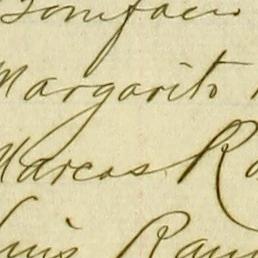 Bonifacio
Margarito
Marcos Ra
Luis Ram